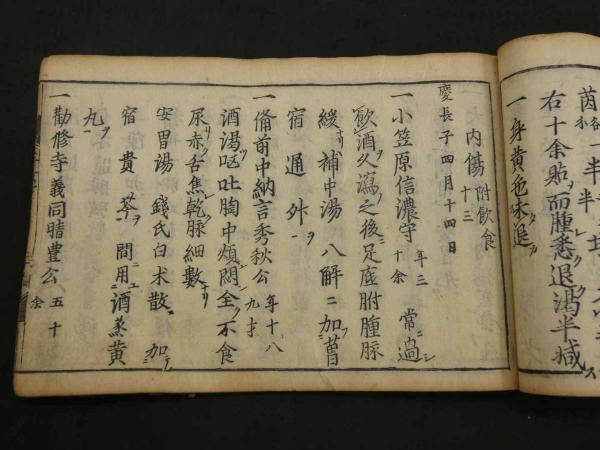 茵
一半半
右十余貼ニ而腫悉退渇半減ス
一身黄色未退
内傷附飲食
十三
慶長子四月十四日
一小笠原信濃守年三十余常ニ過シ
飲酒久瀉之後足底胕腫脈
緩補中湯八解ニ加フ
宿通外ヲ
一備前中納言秀秋公年十八九才
酒渇嘔吐胸中煩悶全ク不食
尿赤舌焦乾脉細数ナリ
安胃湯錢氏白术散ニ加
宿貴翠ヲ間用ユ酒蒸黄
九ヲ
一勸修寺義同晴豊公五十余